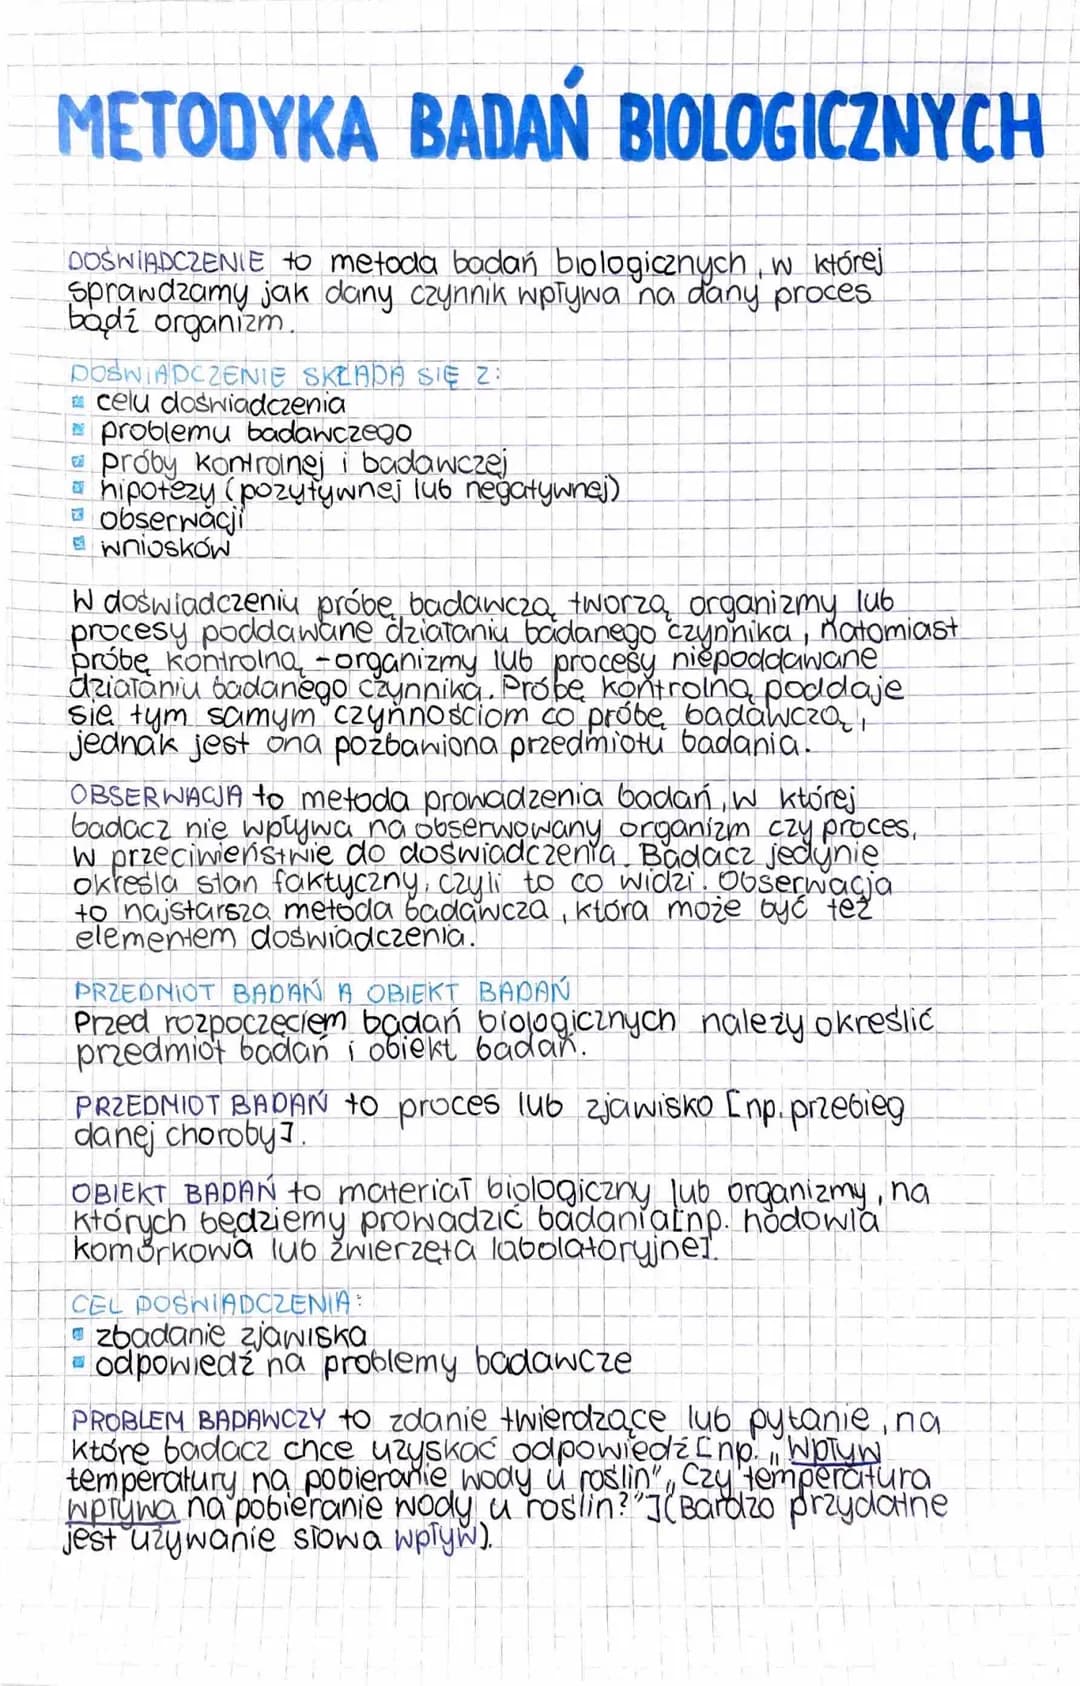 METODYKA BADAŃ BIOLOGICZNYCH
DOŚWIADCZENIE to metoda badań biologicznych, w której
sprawdzamy jak dany czynnik wpływa na dany proces
bądź organizm.
DOŚWIADCZENIE SKŁADA SIĘ Z:
celu doświadczenia
problemu badawczego
próby kontrolnej i badawczej
hipotezy (pozytywnej lub negatywnej)
obserwacji
wniosków
W doświadczeniu próbę badawczą tworzą organizmy lub
procesy poddawane działaniu badanego czynnika, natomiast
próbę kontrolną - organizmy lub procesy niepoddawane
działaniu badanego czynnika. Próbę kontrolną poddaje
się tym samym czynnościom co próbę badawczą,
jednak jest ona pozbawiona przedmiotu badania.
OBSERWACJA to metoda prowadzenia badań, w której
badacz nie wpływa na obserwowany organizm czy proces,
w przeciwieństwie do doświadczenia. Badacz jedynie
określa stan faktyczny, czyli to co widzi. Obserwacja
to najstarsza metoda badawcza, która może być też
elementem doświadczenia.
PRZEDMIOT BADAŃ A OBIEKT BADAŃ
Przed rozpoczęciem badań biologicznych należy określić
przedmiot badań i obiekt badań.
PRZEDMIOT BADAŃ to proces lub zjawisko [np. przebieg
danej choroby].
OBIEKT BADAŃ to materiał biologiczny lub organizmy, na
których będziemy prowadzić badania[np. hodowla
komórkowa lub zwierzęta labolatoryjne].
CEL DOŚWIADCZENIA:
zbadanie zjawiska
odpowiedź na problemy badawcze
PROBLEM BADAWCZY to zdanie twierdzące lub pytanie, na
które badacz chce uzyskać odpowiedź [np. „Wpływ
temperatury na pobieranie wody u roślin", Czy temperatura
wpływa na pobieranie wody u roślin?"](Bardzo przydatne
jest używanie słowa wpływ).